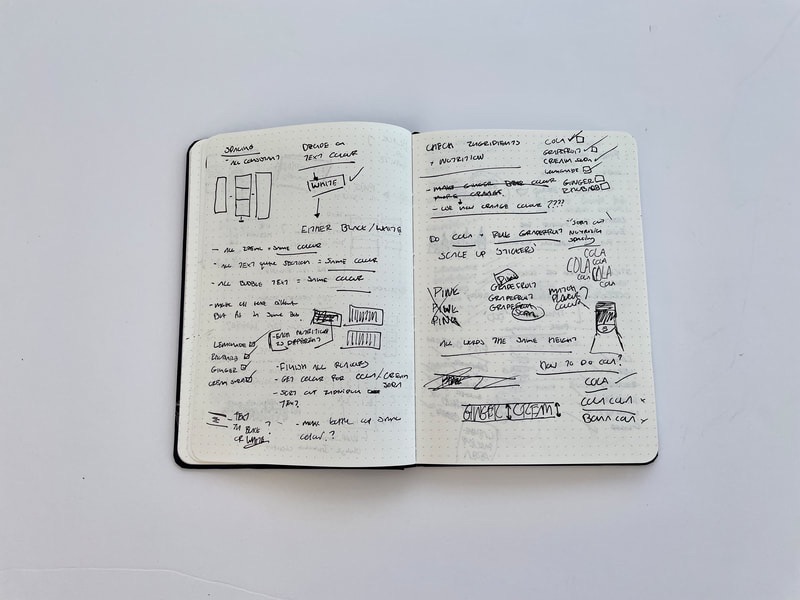 SPACING
- ALL CONSISTENT
DECIDE ON
TEXT COLOUR
WHITE
EITHER BLACK/WHITE
SAME COLOUR
- ALL TEXT SECTION = SAME COLOUR
- ALL BUBBLE TEXT = SAME COLOUR
BUT FIT IN SAME BOX
- EACH NUTRITION
IS DIFFERENT
LEMONADE
GINGER
CREAM SODA
- FINISH ALL
- GET COLOUR FOR COLA/CREAM
SODA
- SORT OUT NUTRITION
TEXT?
- TEXT
IN BLACK?
OR WHITE
- MAKE SAME
COLOUR?
CHECK INGREDIENTS
+ NUTRITION
COLA
GRAPEFRUIT
CREAM SODA
LEMONADE
GINGER
RHUBARB
- MAKE GINGER COLOUR
MORE ORANGE
- ORANGE COLOUR ????
DO COLA + PINK GRAPEFRUIT
- SORT OUT
NUTRITION
SPACING
SCALE UP STICKERS
COLA
COLA
COLA
COLA
COLA
COLA
PINK
GRAPEFRUIT
PINK
GRAPEFRUIT
PINK
GRAPEFRUIT
SODA
MATCH
COLOUR?
ALL THE SAME HEIGHT
HOW TO DO COLA?
COLA
COLA COLA
COLA
GINGER CREAM